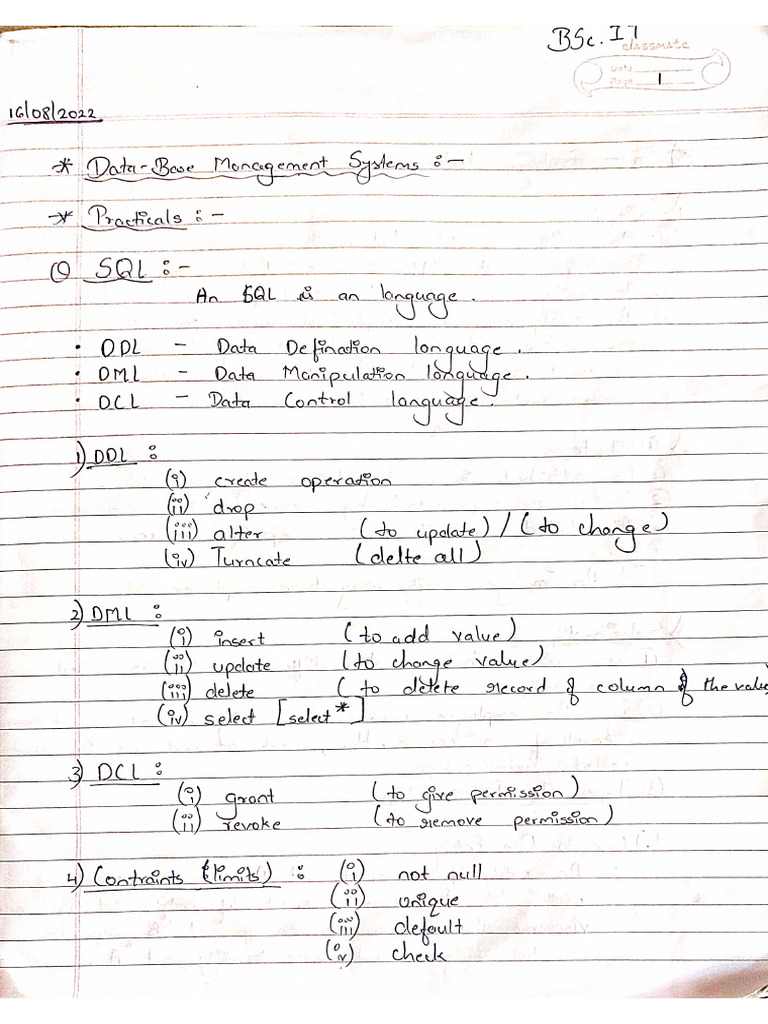 BSc. IT
classmate
Date
Page 1
16/08/2022
* Data-Base Management Systems :-
* Practicals :-
① SQL :-
An SQL is an language.
• DDL - Data Defination language.
• DML - Data Manipulation language.
• DCL - Data Control language.
1) DDL :
(i) create operation
(ii) drop
(iii) alter (to update) / (to change)
(iv) Turncate (delte all)
2) DML :
(i) insert (to add value)
(ii) update (to change value)
(iii) delete (to detete record of column of the value
(iv) select [select *]
3) DCL :
(i) grant (to give permission)
(ii) revoke (to remove permission)
4) Contraints (limits) : (i) not null
(ii) unique
(iii) default
(iv) check